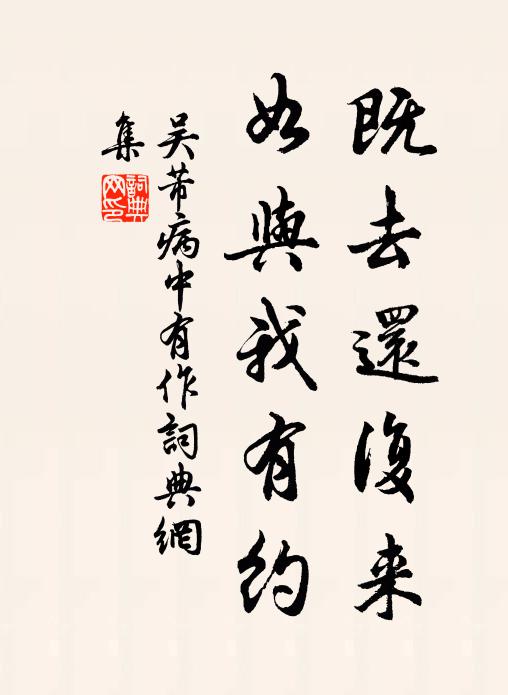 既去還復来
如與我有約
吴芾病中有作詞典網
集
詞典網印